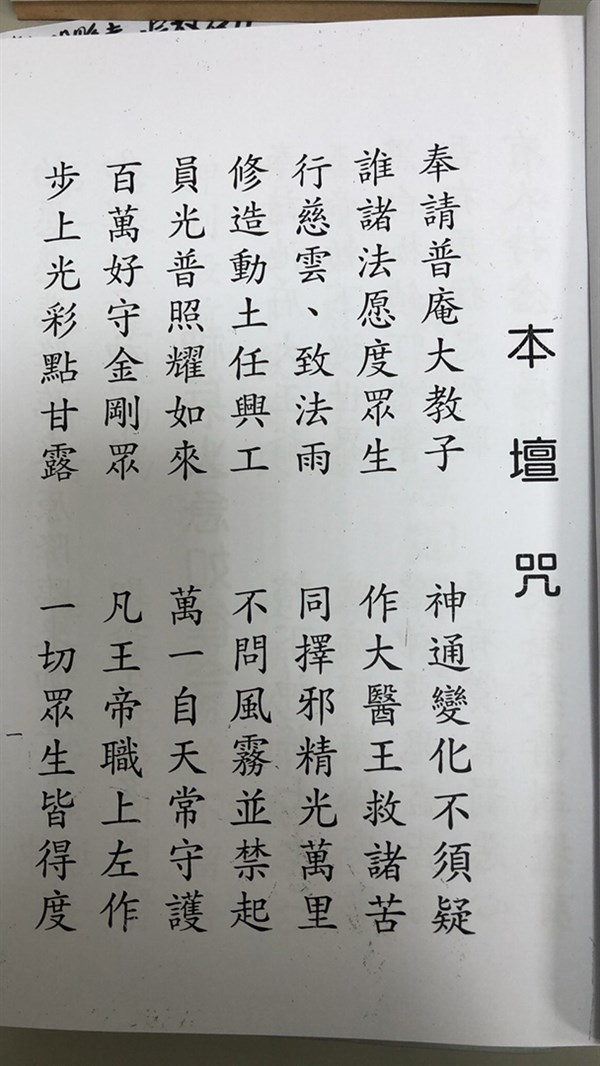 本壇咒
奉請普庵大教子 神通變化不須疑
誰諸法愿度眾生 作大醫王救諸苦
行慈雲、致法雨 同擇邪精光萬里
修造動土任興工 不問風霧並禁起
員光普照耀如來 萬一自天常守護
百萬好守金剛眾 凡王帝職上左作
步上光彩點甘露 一切眾生皆得度
一